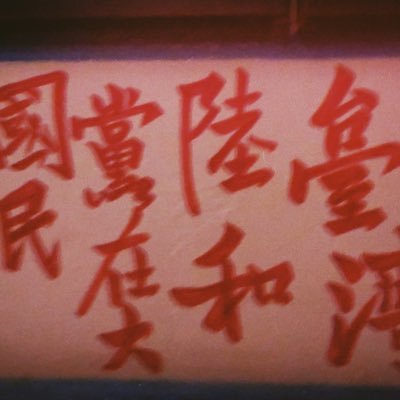 國民
黨在大
陸和
臺灣